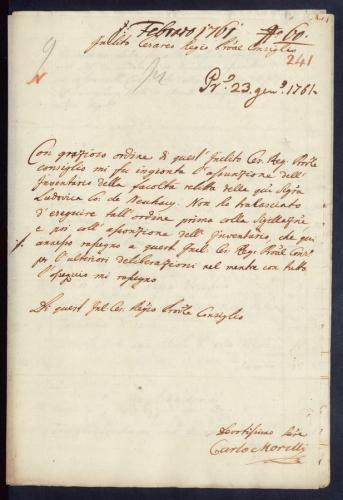 Febraro 1761 No 60.
Inclito Cesareo Regio Proale Consiglio
241
Pr. 23. gen. 1761.
Con grazioso ordine di quest' Inclito Ces. Reg. Proale
consiglio mi fu ingionta l'assunzione dell'
Inventario della facoltà relitta della qm Sigra
Ludovica Co. de Neuhaus. Non ho tralasciato
d'eseguire tall' ordine prima colla
e poi coll' assonzione dell' Inventario, che qui
annesso rassegno a quest Incl. Ces. Reg. Proale Consi
per l'ulteriori deliberazioni nel mentre con tutto
l'ossequio mi rassegno
Di quest Incl. Ces. Regio Proale Consiglio
Devotissimo Servre
Carlo Morelli